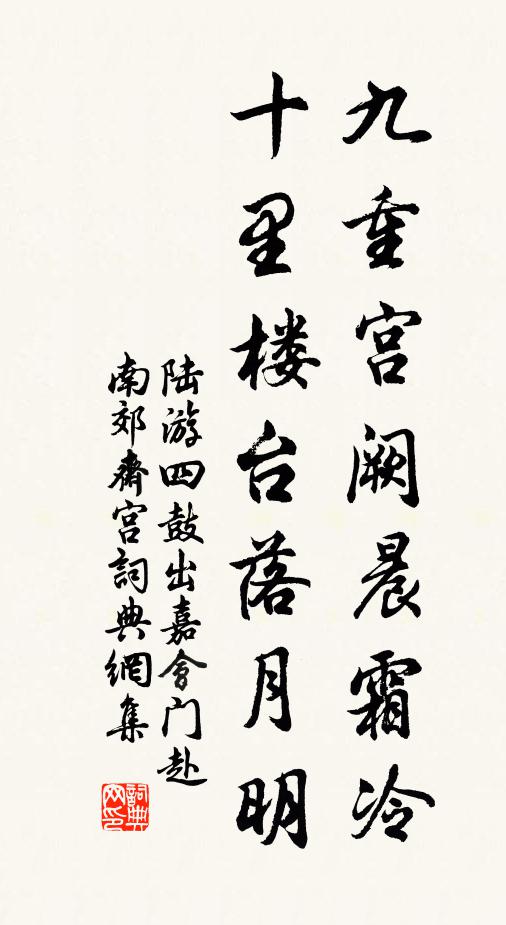 九重宫阙晨霜冷
十里楼台落月明
陆游四鼓出嘉會门赴
南郊齋宫詞典網集
詞典网印